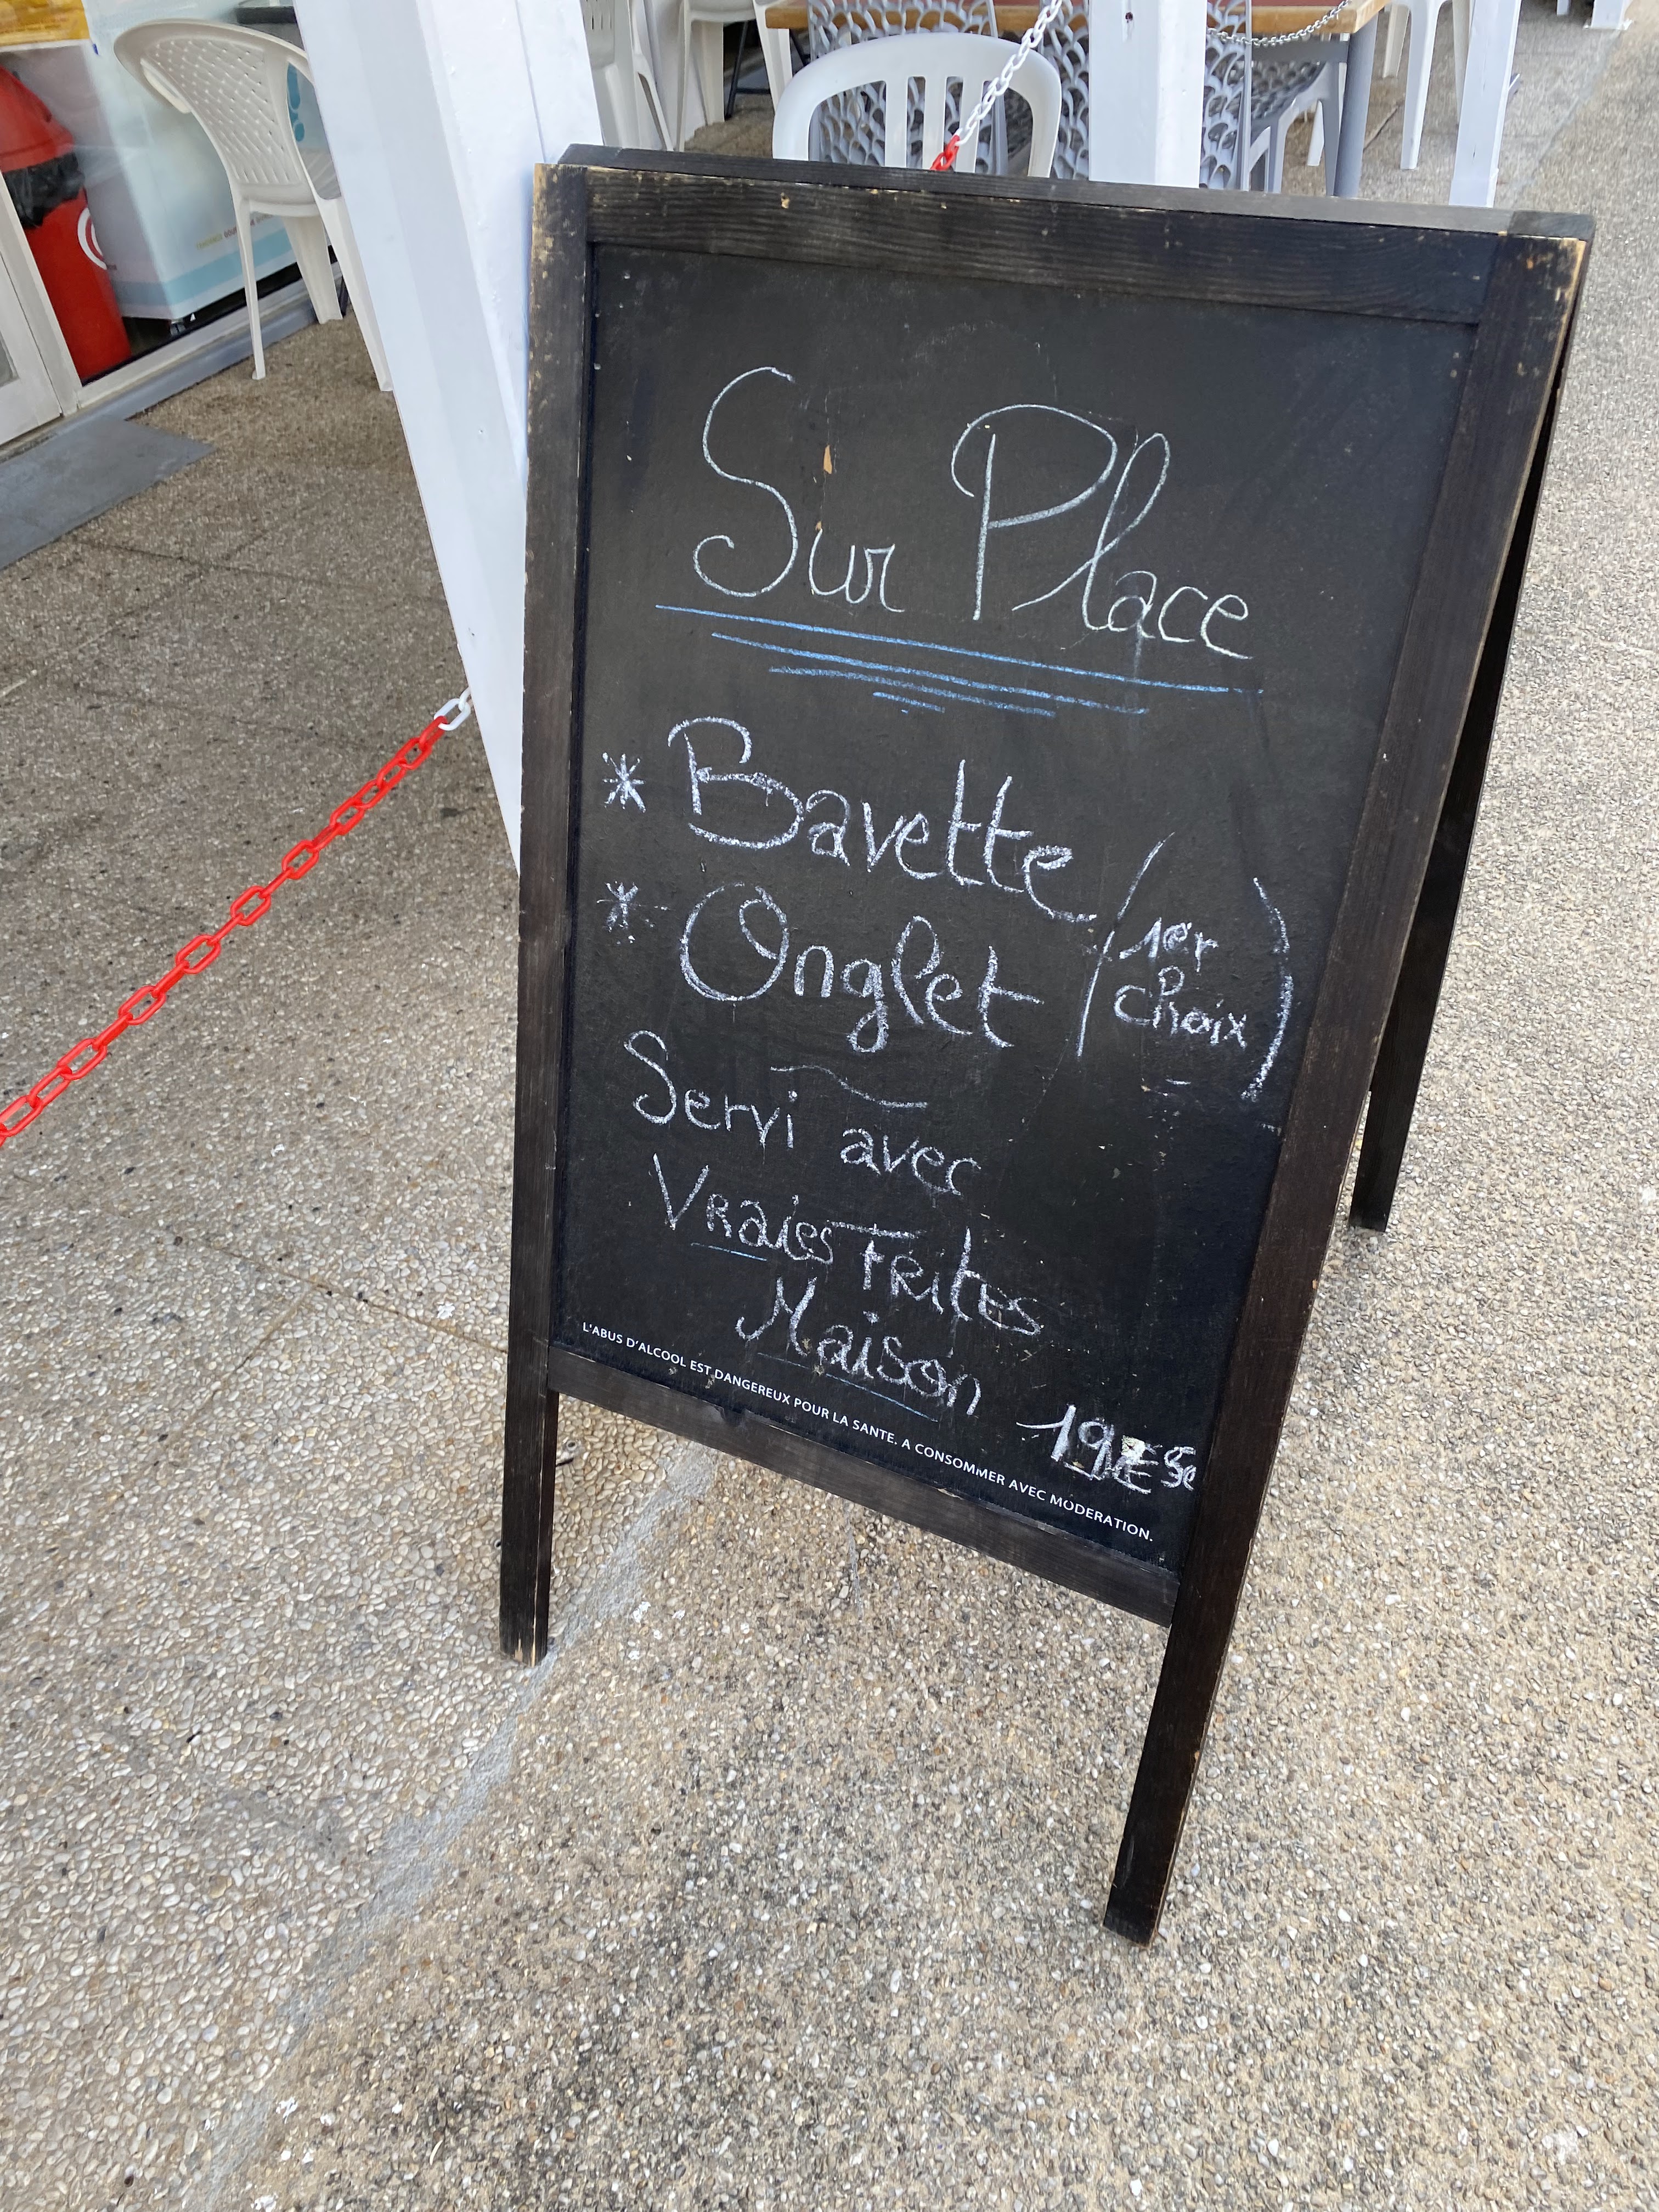 Sur Place
* Bavette
* Onglet
(1er
choix)
Servi avec
Vraies Frites
Maison
19€50
L'ABUS D'ALCOOL EST DANGEREUX POUR LA SANTE. A CONSOMMER AVEC MODERATION.